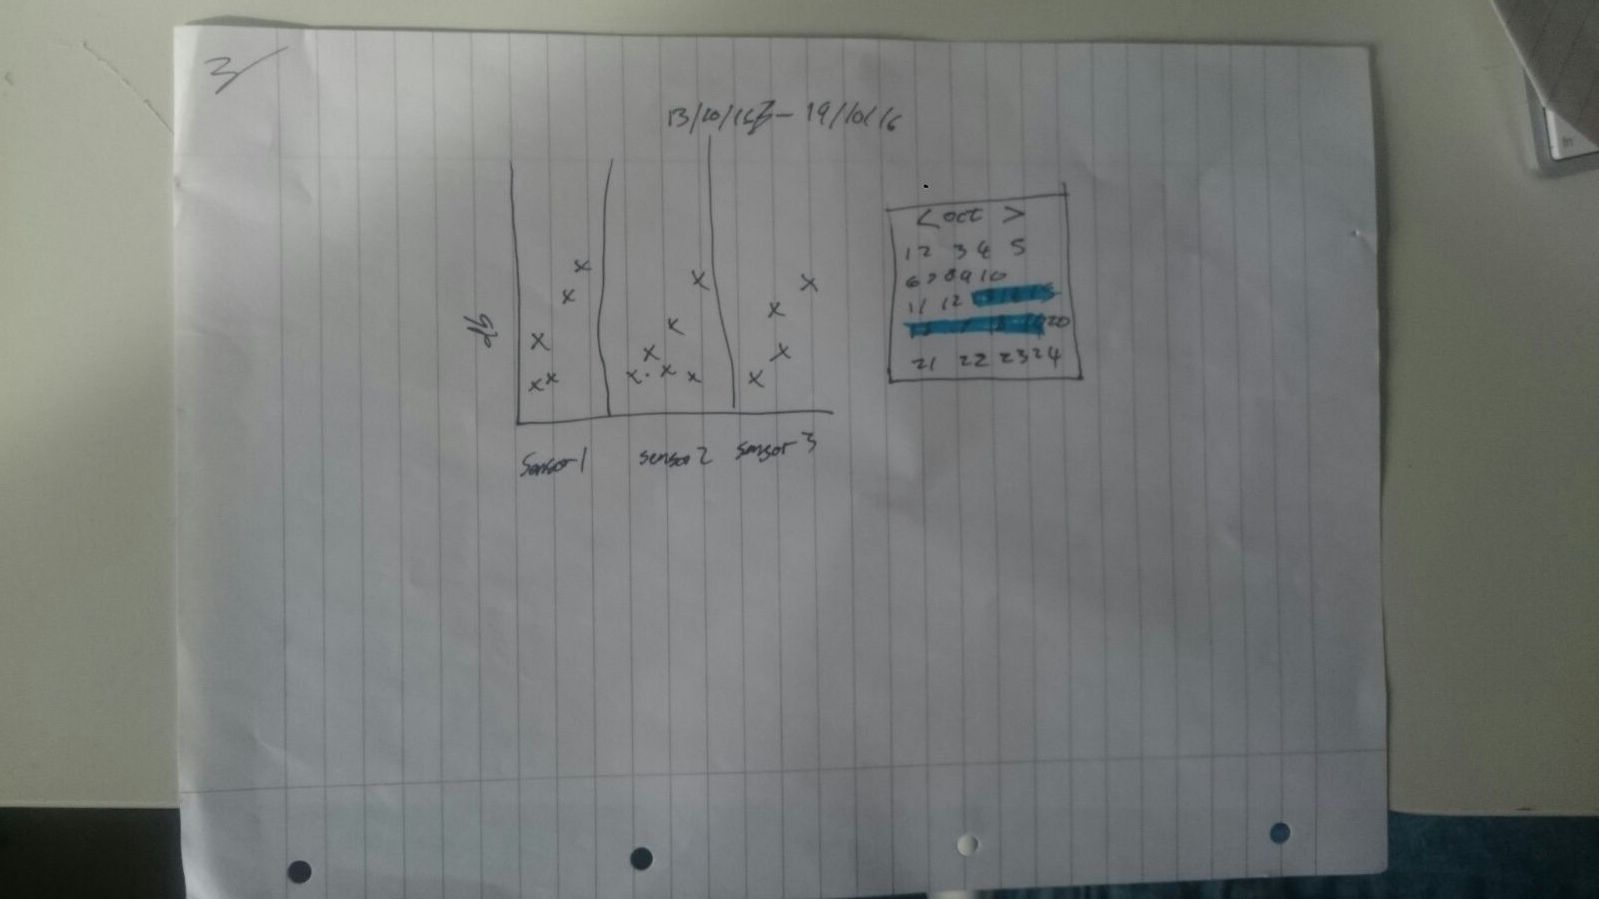 3
13/10/16 - 19/10/16
db
Sensor 1
sensor 2
sensor 3
< oct >
1 2 3 4 5
6 7 8 9 10
11 12
20
21 22 23 24